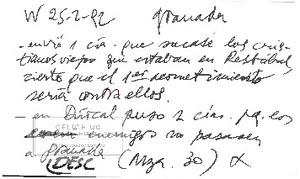 W 25-2-92 Granada
- envió 1 cía. que sacase los cris-
tianos viejos que estaban en Restábal,
cierto que el 1er acometimiento
sería contra ellos.
- en Dúrcal puso 2 cías. pa. los
enemigos no pasasen
a Granada (Mza. 30) α
DESC